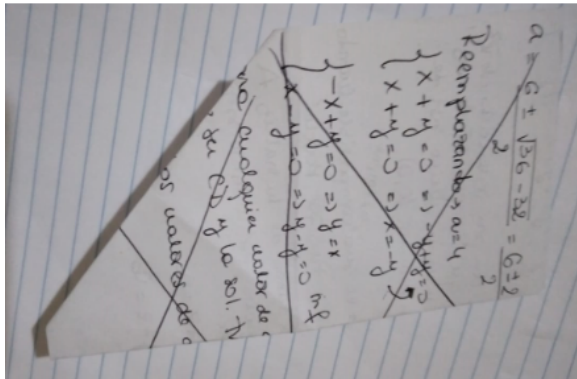 a = 6 ± √36 - 32 / 2 = 6 ± 2 / 2
Reemplazando a = 4
{ x + y = 0 => -y + y = 0
{ x + y = 0 => x = -y
{ -x + y = 0 => y = x
{ x - y = 0 => y - y = 0 inf
cualquier valor de
y la sol.
valores de